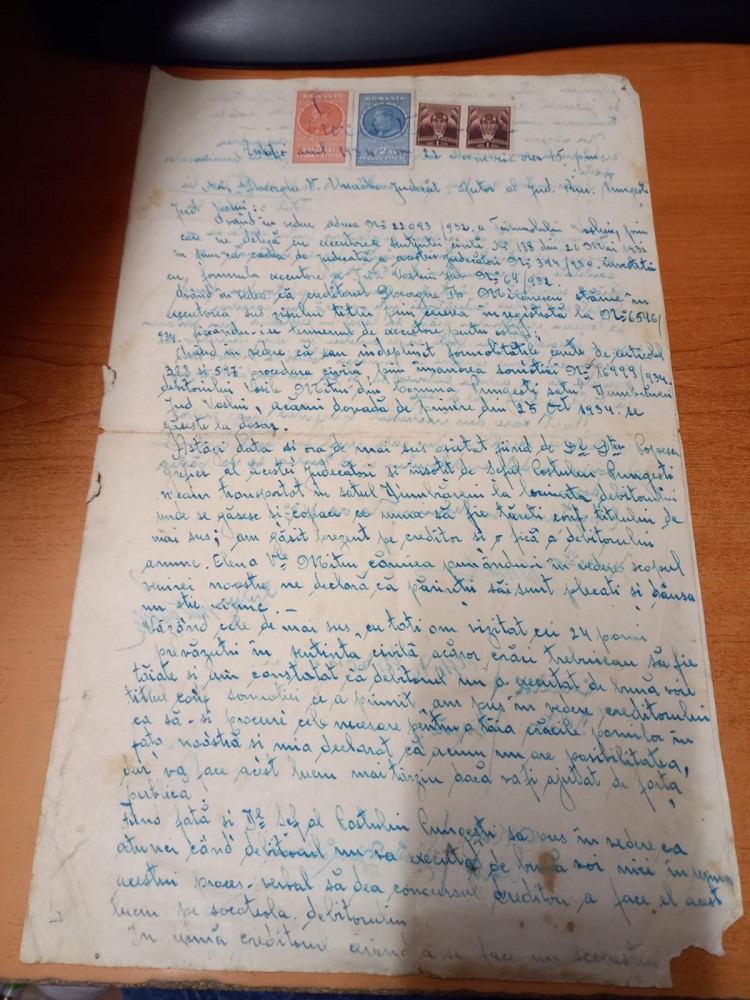 ROMANIA ROMANIA
Astăzi anul 1934 luna 22 Noembrie ora 15 
Noi, Gheorghe V. Judecăt. Ajutor al Jud. Pungești
Jud. Vaslui:
Având în vedere adresa No 22093/932 a Tribunalului Vaslui, prin
care ne delegă cu executarea sentinței civile No 118 din 21 Mai 1931
în cartea de judecată a acestei judecătorii No 344/930 investită
cu formula executore a Trib. Vaslui sub No 64/932.
Având în vedere că creditorul Gheorghe Th. Mironescu stărue în
executarea sus zisului titlu prin cererea înregistrată la No 6546/
934 fixându-i-se termenul de executare pentru astăzi;
Având în vedere că sau îndeplinit formalitățile cerute de articolul
388 și 597 procedura civilă prin înmânarea somației No 16999/934
debitorului Vasile Mitru din comuna Pungești satul Țimbrăreni
Jud Vaslui, a cărui dovadă de primire din 25 Oct 1934 se
găsește la dosar.
Astăzi data și ora de mai sus asistat fiind de Dl Popescu
grefier al acestei judecătorii și însoțit de Șeful Postului Pungești
neam transportat în satul Țimbrăreni la locuința debitorului
unde se găsesc și copacii ce urma să fie tăeați conf. titlului de
mai sus; am găsit prezent pe creditor și o fică a debitorului
anume Elena Vle Mitru căreia punându-i în vedere scopul
venirei noastre ne declară că părinții săi sunt plecați și dânsa
nu știe nimic.-
Văzând cele de mai sus, cu toți am vizitat cei 24 pomi
prevăzuți în sentința civilă ai căror crăci trebuieau să fie
tăiate și am constatat că debitorul nu a executat de bună voie
titlul conf somației ce a primit, am pus în vedere creditorului
ca să-și procure cele necesare pentru a tăia crăcile pomilor în
fața noastră și mia declarat că acum nu are posibilitatea,
dar va face acest lucru mai târziu dacă va fi ajutat de forța
publică.
fiind față și Dl Șeful Postului Pungești sa pus în vedere ca
atunci când debitorul nu va executa de bună voi nici în urma
acestui proces-verbal să dea concursul creditor a face el acest
lucru pe socoteala debitorului
În urmă creditorul a se face un